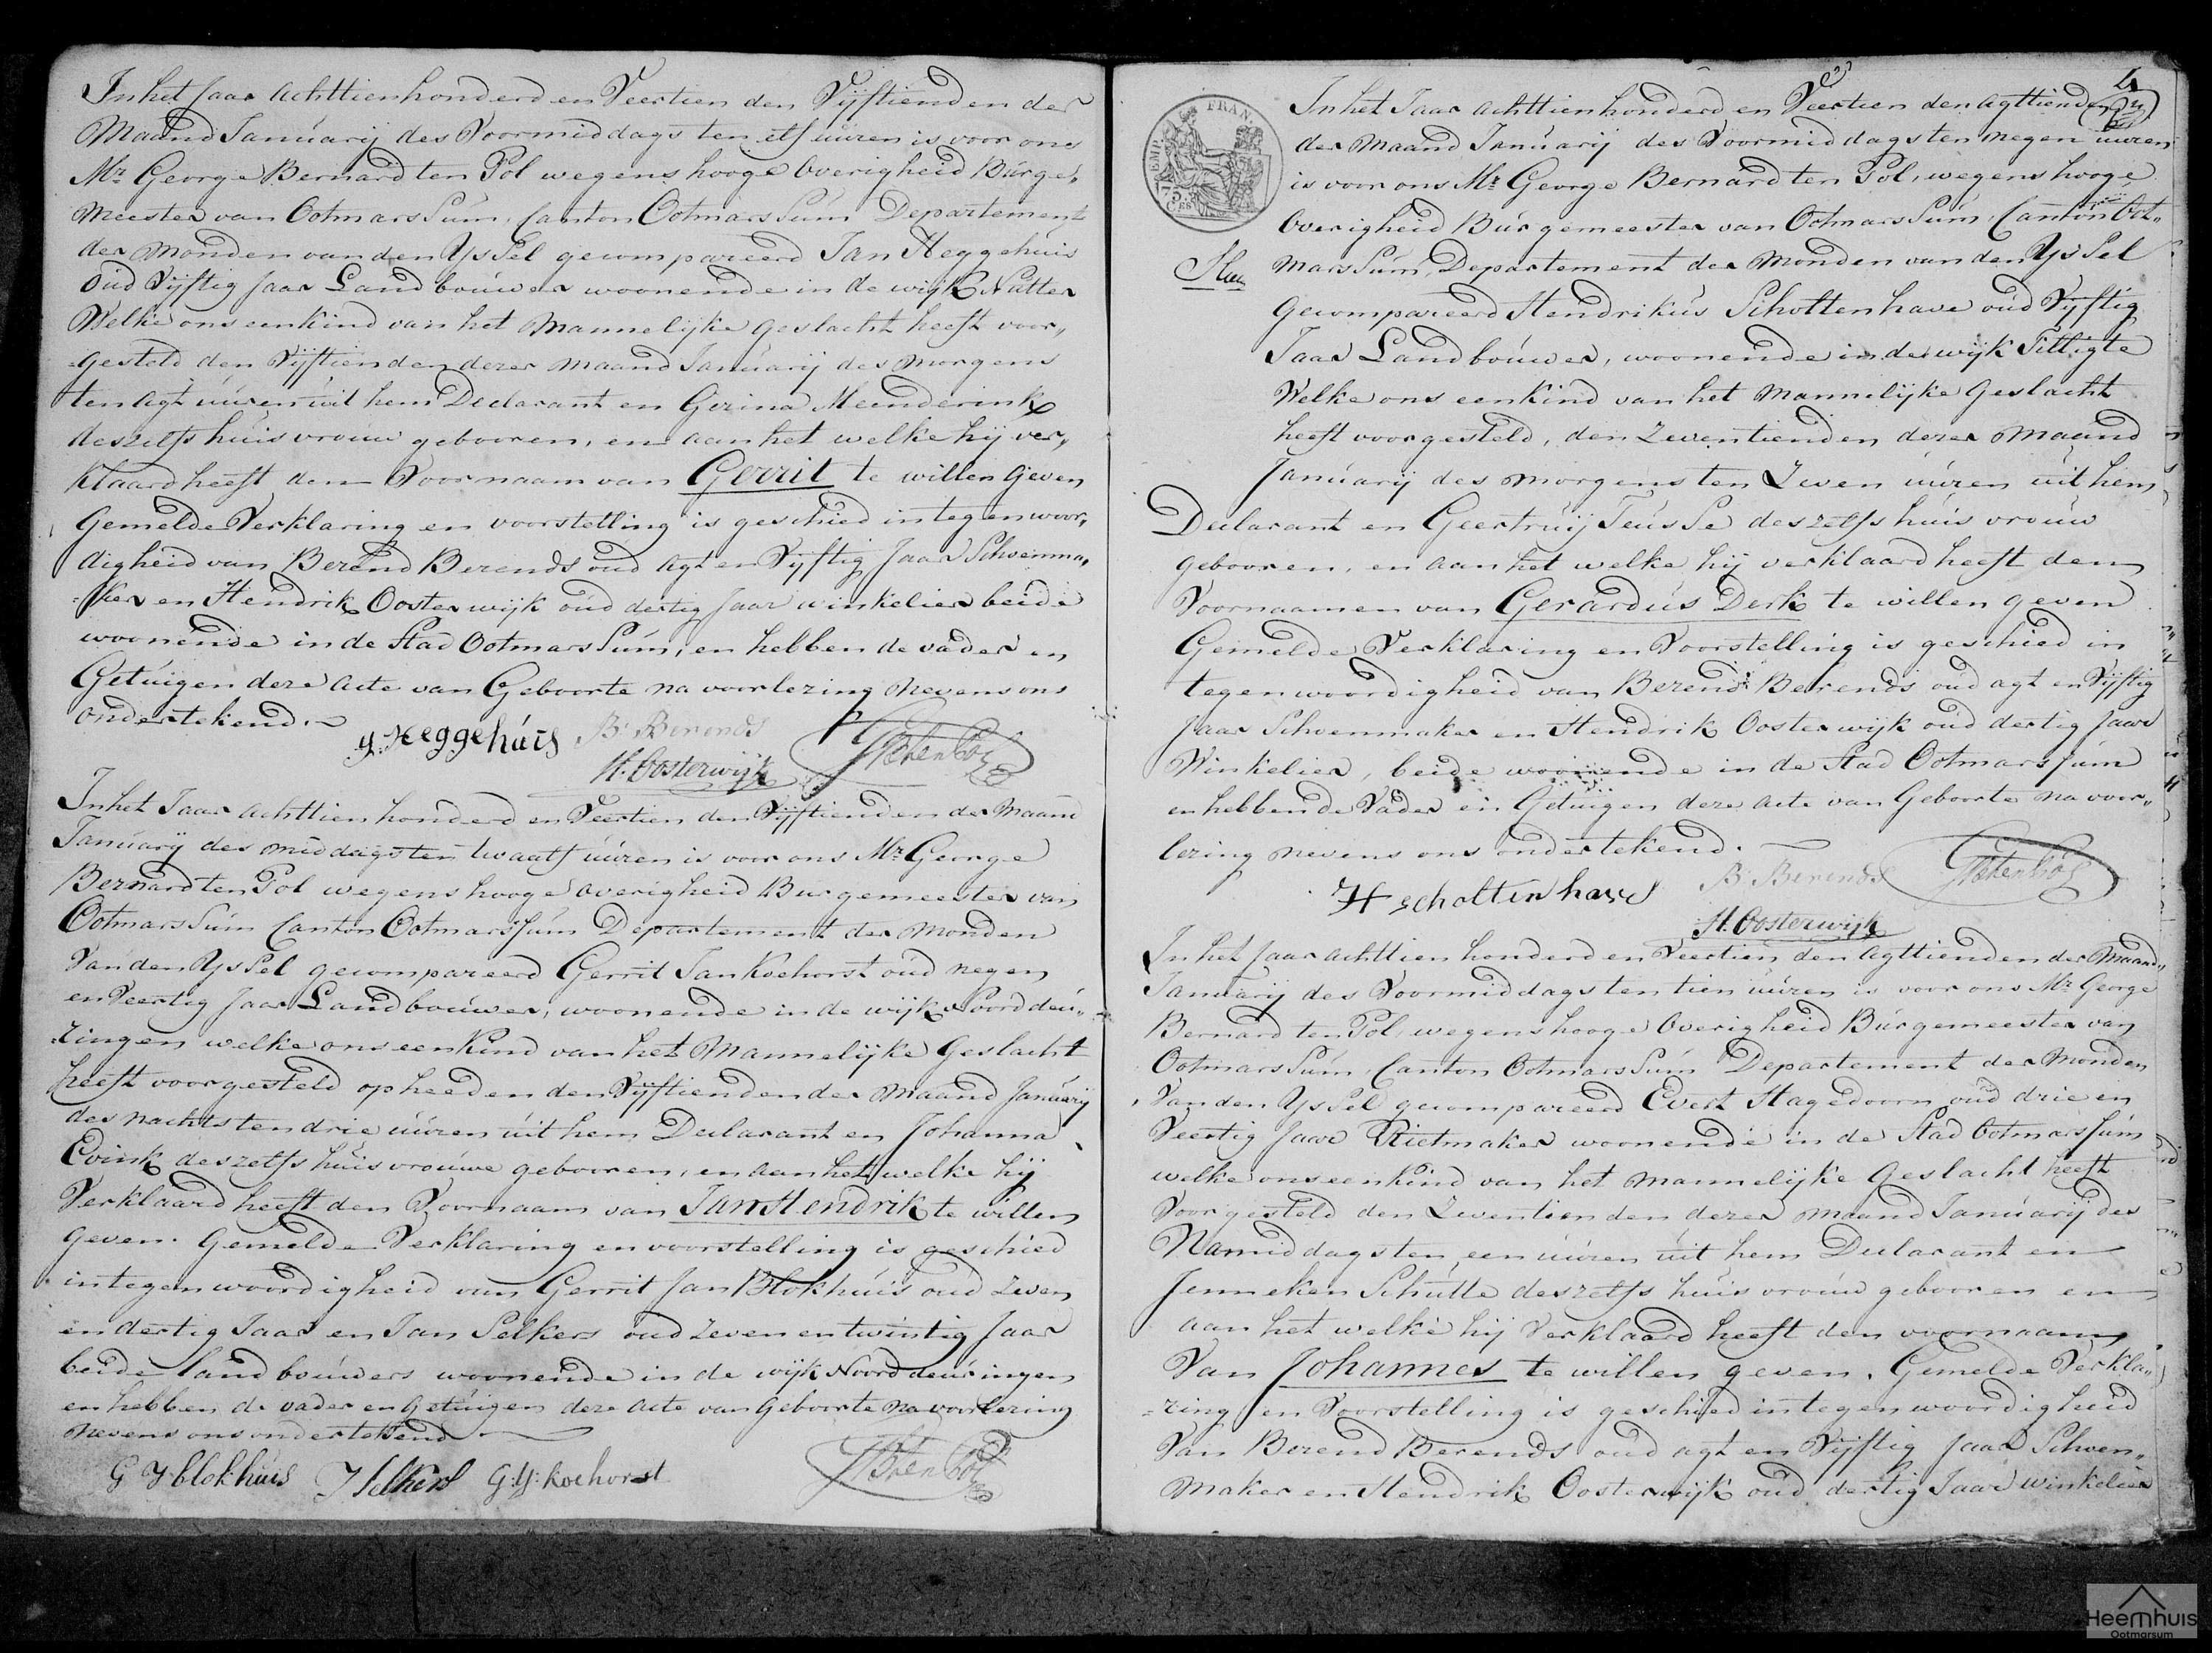 In het Jaar achttienhonderd en Veertien den Vijftienden der
Maand Januarij des Voormiddags ten elf uuren is voor ons
Mr. George Bernard ten Pol wegens hooge Overigheid Burge„
Meester van Ootmarssum, Canton Ootmarssum Departement
der Monden van den Yssel gecompareerd Jan Heggehuis
oud Vijftig Jaar Landbouwer woonende in de wijk Nutter
Welke ons een Kind van het Mannelijke geslacht heeft voor„
gesteld den Vijftienden dezer Maand Januarij des morgens
ten agt uuren uit hem Declarant en Gezina Meenderink
deszelfs huisvrouw gebooren, en aan het welke hij ver„
klaard heeft den Voornaam van Gerrit te willen geven
Gemelde Verklaring en voorstelling is geschied in tegenwoor„
digheid van Berend Berends oud agt en Vijftig Jaar Schoenma„
=ker en Hendrik Oosterwijk oud dertig Jaar winkelier beide
woonende in de Stad Ootmarssum, en hebben de vader en
Getuigen deze acte van Geboorte na voorlezing nevens ons
ondertekend.
J: Heggehuis B: Berends
H. Oosterwijk GB ten Pol
In het Jaar achttien honderd en Veertien den Vijftienden der Maand
Januarij des middags ten twaalf uuren is voor ons Mr. George
Bernard ten Pol wegens hooge overigheid Burgemeester van
Ootmarssum Canton Ootmarssum Departement der Monden
Van den Yssel gecompareerd Gerrit Jan Koehorst oud negen
en Veertig Jaar Landbouwer, woonende in de wijk Noorddeu„
=ringen welke ons een Kind van het Mannelijke Geslacht
heeft voorgesteld op heeden den Vijftienden der Maand Januarij
des nachts ten drie uuren uit hem Declarant en Johanna
Evink deszelfs huisvrouwe gebooren, en aan het welke hij
Verklaard heeft den Voornaam van Jan Hendrik te willen
Geven. Gemelde Verklaring en voorstelling is geschied
in tegenwoordigheid van Gerrit Jan Blokhuis oud zeven
en dertig Jaar en Jan Selkers oud zeven en twintig Jaar
beide landbouwers woonende in de wijk Noorddeuringen
en hebben de vader en Getuigen deze acte van geboorte na voorlezing
nevens ons ondertekend
G J blokhuis J Selkers G: J: Koehorst GB ten Pol
4
EMP. FRAN.
75 CES
In het Jaar achttienhonderd en Veertien den agttienden
der Maand Januarij des Voormiddags ten negen uuren
is voor ons Mr. George Bernard ten Pol, wegens hooge
Overigheid Burgemeester van Ootmarssum, Canton Oot„
marssum, Departement der Monden van den Yssel
gecompareerd Hendrikus Scholtenhave oud Vijftig
Jaar Landbouwer, woonende in de wijk Tilligte
Welke ons een Kind van het Mannelijke Geslacht
heeft voorgesteld, den Zeventienden dezer Maand
Januarij des morgens ten Zeven uuren uit hem
Declarant en Geertruij Teusse deszelfs huisvrouw
gebooren, en aan het welke hij verklaard heeft den
Voornaamen van Gerardus Derk te willen geven
Gemelde Verklaring en Voorstelling is geschied in
tegenwoordigheid van Berend Berends oud agt en Vijftig
Jaar Schoenmaker en Hendrik Oosterwijk oud dertig Jaar
Winkelier, beide woonende in de Stad Ootmarssum
en hebben de Vader en Getuigen deze acte van Geboorte na voor„
lezing nevens ons ondertekend.
H scholtenhave B: Berends GB ten Pol
H. Oosterwijk
In het Jaar achttien honderd en Veertien den agttienden der Maand„
Januarij des Voormiddags ten tien uuren is voor ons Mr. George
Bernard ten Pol, wegens hooge Overigheid Burgemeester van
Ootmarssum, Canton Ootmarssum Departement der Monden
Van den Yssel gecompareerd Evert Hagedoorn oud drie en
Veertig Jaar Rietmaker woonende in de Stad Ootmarssum
welke ons een Kind van het Mannelijke Geslacht heeft
Voorgesteld den Zeventienden dezer Maand Januarij des
Namiddags ten een uuren uit hem Declarant en
Jenneken Schutte deszelfs huisvrouw gebooren en
aan het welke hij Verklaard heeft den voornaam
Van Johannes te willen geven. Gemelde Verkla„
=ring en Voorstelling is geschied in tegenwoordigheid
Van Berend Berends oud agt en Vijftig Jaar Schoen„
maker en Hendrik Oosterwijk oud dertig Jaar Winkelier
Heemhuis
Ootmarsum